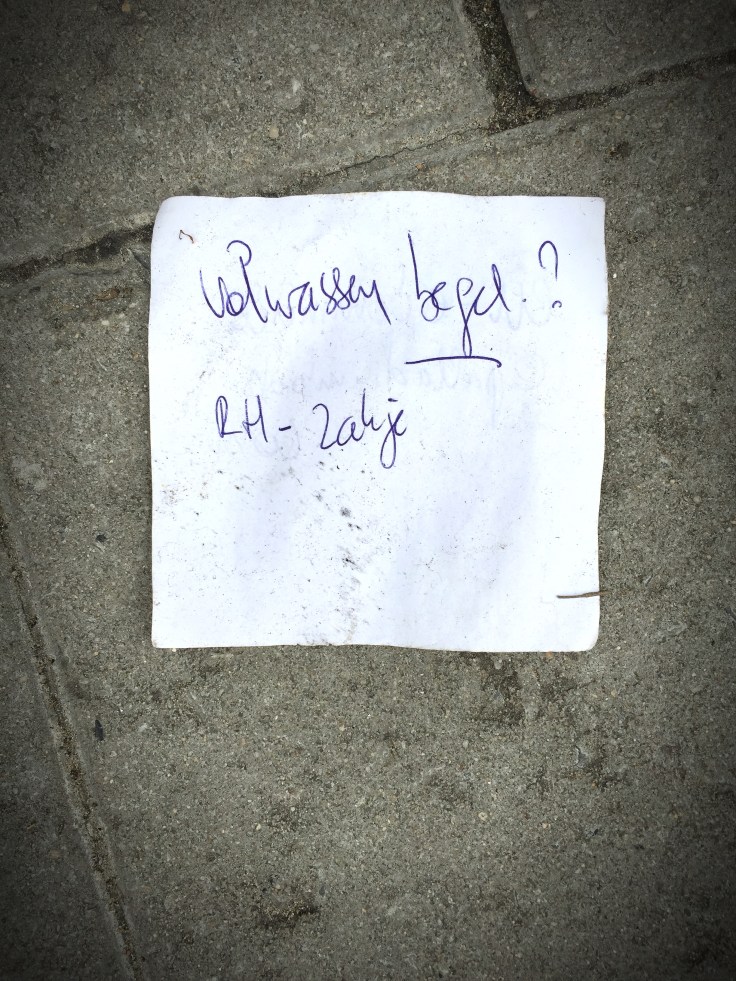 volwassen begel.?
RH- zakje